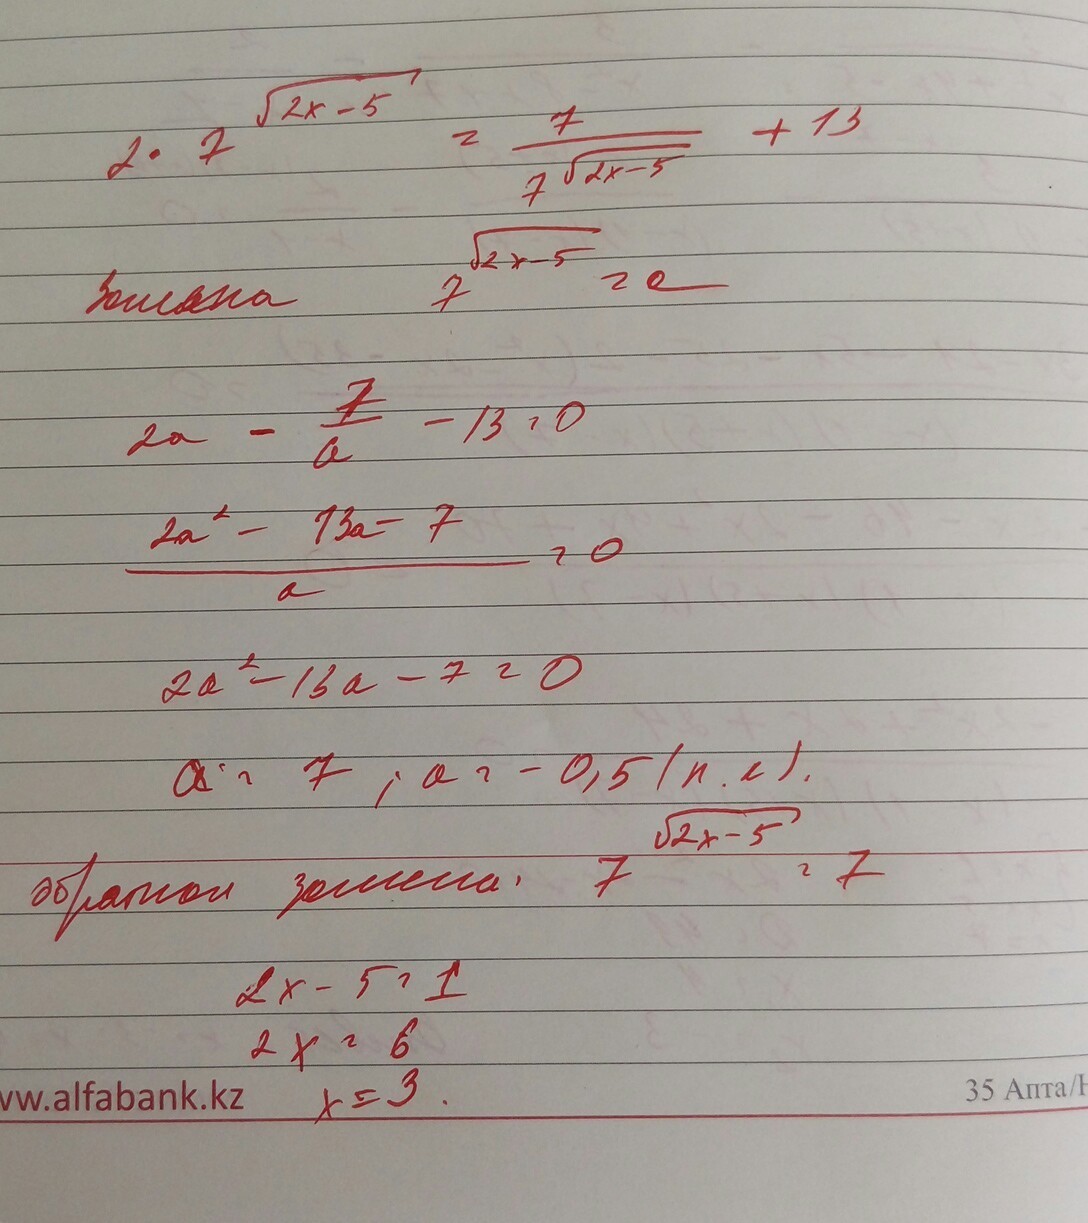 2 · 7^√(2x-5) = 7/7^√(2x-5) + 13
Замена 7^√(2x-5) = a
2a - 7/a - 13 = 0
(2a² - 13a - 7)/a = 0
2a² - 13a - 7 = 0
a = 7 ; a = -0,5 (п.к).
Обратная замена: 7^√(2x-5) = 7
2x - 5 = 1
2x = 6
x = 3.
ww.alfabank.kz 35 Апта/Н